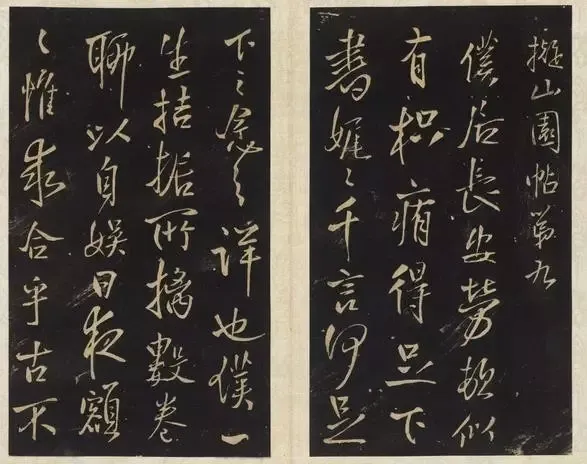 擬山園帖第九
僕居長安勞頓似
有枳痏得足下
書娓〻千言何足
下之念之詳也僕一
生拮据所摛數卷
聊以自娛日夜額
〻惟求合乎古不